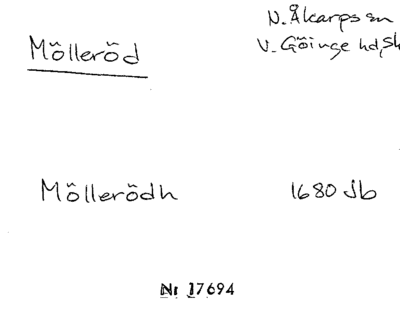 N. Åkarps sn
Mölleröd
V. Göinge hd, Sk
Möllerödh 1680 Jb
Nr 17694